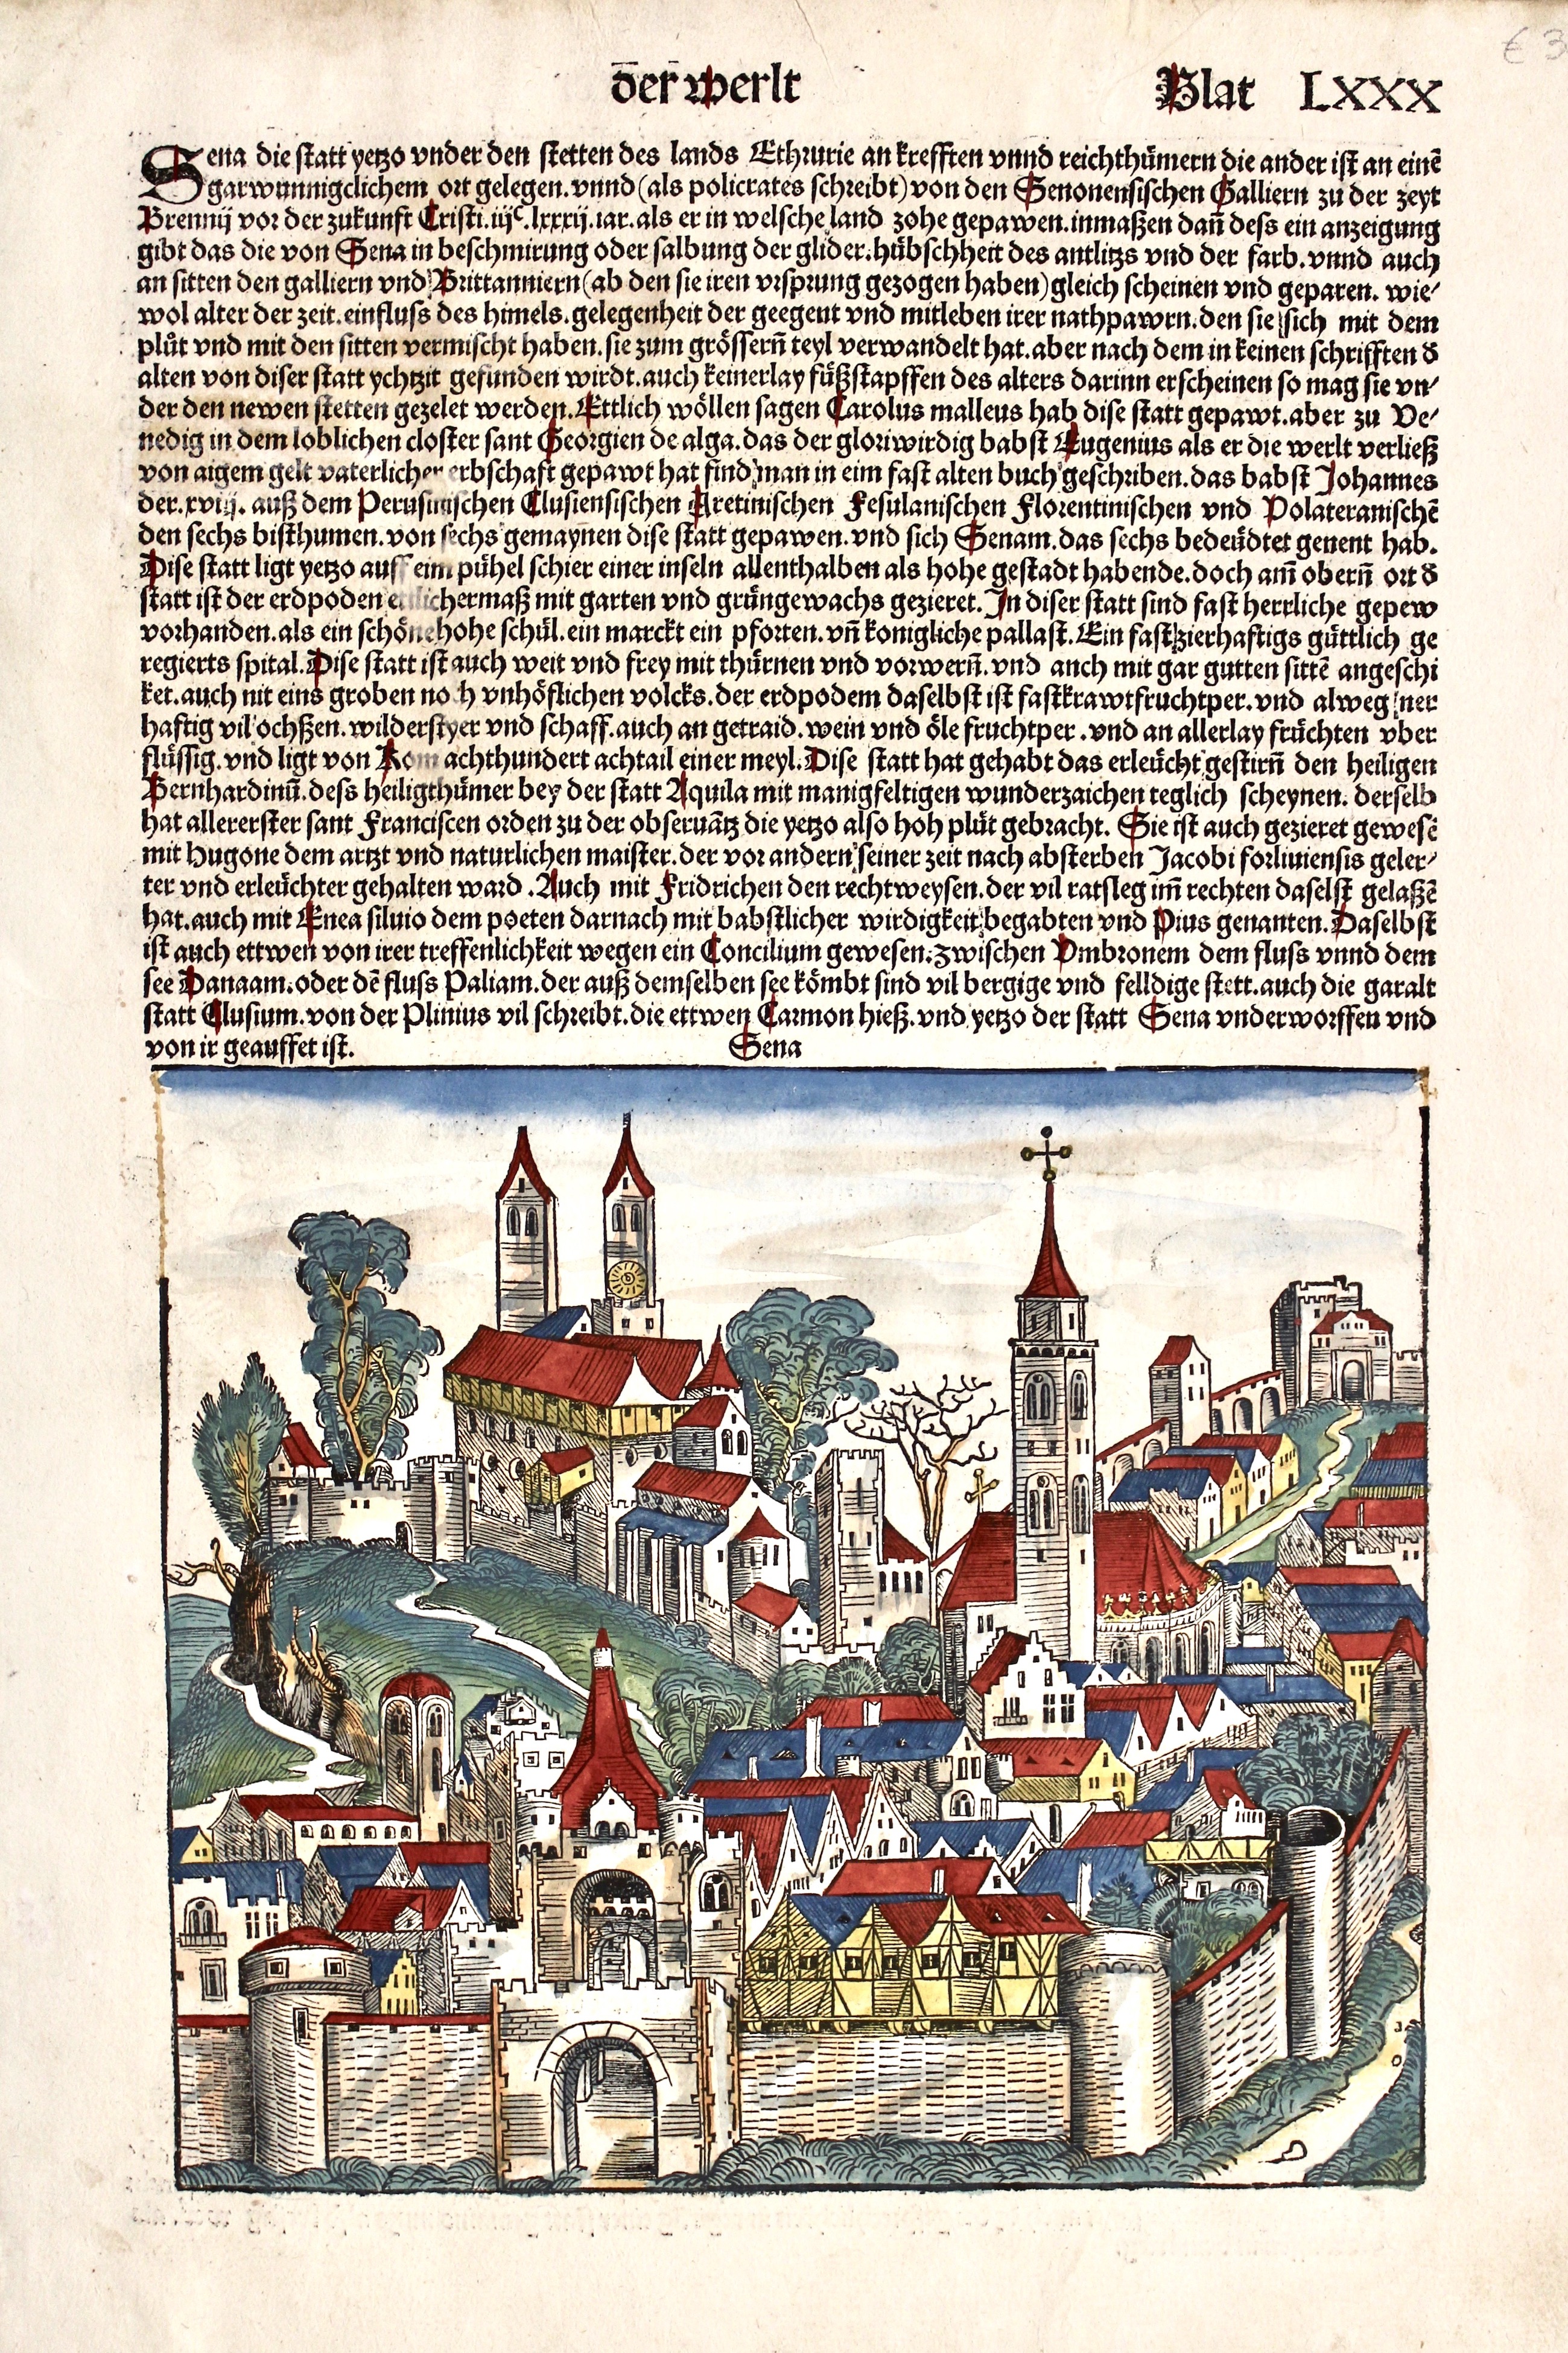 der werlt
Blat LXXX
Sena die statt yetzo vnder den stetten des lands Ethrurie an krefften vnnd reichthümern die ander ist an einē
gar wunnigclichem ort gelegen. vnnd (als policrates schreibt) von den Senonensischen Galliern zu der zeyt
Brennij vor der zukunft Cristi. iijᶜ. lxxxij. iar. als er in welsche land zohe gepawen. inmaßen dañ dess ein anzeigung
gibt das die von Sena in beschmirung oder salbung der glider. hübschheit des antlitzs vnd der farb. vnnd auch
an sitten den galliern vnd Brittanniern (ab den sie iren vrsprung gezogen haben) gleich scheinen vnd geparen. wie-
wol alter der zeit. einfluss des himels. gelegenheit der geegent vnd mitleben irer nathpawrn. den sie sich mit dem
plůt vnd mit den sitten vermischt haben. sie zum grösserñ teyl verwandelt hat. aber nach dem in keinen schrifften d̄
alten von diser statt ychtzit gefunden wirdt. auch keinerlay fůßstapffen des alters darinn erscheinen so mag sie vn-
der den newen stetten gezelet werden. Ettlich wöllen sagen Carolus malleus hab dise statt gepawt. aber zu Ve-
nedig in dem loblichen closter sant Georgien de alga. das der gloriwirdig babst Eugenius als er die werlt verließ
von aigem gelt vaterlicher erbschaft gepawt hat find man in eim fast alten buch geschriben. das babst Johannes
der. xviij. auß dem Perusinischen Clusiensischen Aretinischen Fesulanischen Florentinischen vnd Volateranischē
den sechs bisthumen. von sechs gemaynen dise statt gepawen. vnd sich Senam. das sechs bedeüdtet genent hab.
Dise statt ligt yetzo auff eim pühel schier einer inseln allenthalben als hohe gestadt habende. doch am̄ oberñ ort d̄
statt ist der erdpoden etlichermaß mit garten vnd grüngewachs gezieret. In diser statt sind fast herrliche gepew
vorhanden. als ein schöne hohe schůl. ein marckt ein pforten. vñ konigliche pallast. Ein fast zierhaftigs güttlich ge
regierts spital. Dise statt ist auch weit vnd frey mit thürnen vnd vorwerñ. vnd auch mit gar gutten sittē angeschi
ket. auch nit eins groben noch vnhöflichen volcks. der erdpodem daselbst ist fast krawtfruchtper. vnd alweg ner
haftig vil ochßen. wilderstyer vnd schaff. auch an getraid. wein vnd öle fruchtper. vnd an allerlay früchten vber
flüssig. vnd ligt von Rom achthundert achtail einer meyl. Dise statt hat gehabt das erleücht gestirñ den heiligen
Bernhardinū. dess heiligthümer bey der statt Aquila mit manigfeltigen wunderzaichen teglich scheynen. derselb
hat allererster sant Franciscen orden zu der obseruātz die yetzo also hoh plüt gebracht. Sie ist auch gezieret gewesē
mit Hugone dem artzt vnd naturlichen maister. der vor andern seiner zeit nach absterben Jacobi forliuiensis geler-
ter vnd erleüchter gehalten ward. Auch mit Fridrichen den rechtweysen. der vil ratsleg im̄ rechten daselst gelaßē
hat. auch mit Enea siluio dem poeten darnach mit babstlicher wirdigkeit begabten vnd Pius genanten. Daselbst
ist auch ettwen von irer treffenlichkeit wegen ein Concilium gewesen. zwischen Vmbronem dem fluss vnnd dem
see Vanaam. oder dē fluss Paliam. der auß demselben see kömbt sind vil bergige vnd felldige stett. auch die gar alt
statt Clusium. von der Plinius vil schreibt. die ettwen Carmon hieß. vnd yetzo der statt Sena vnderworffen vnd
von ir geauffet ist.
Sena